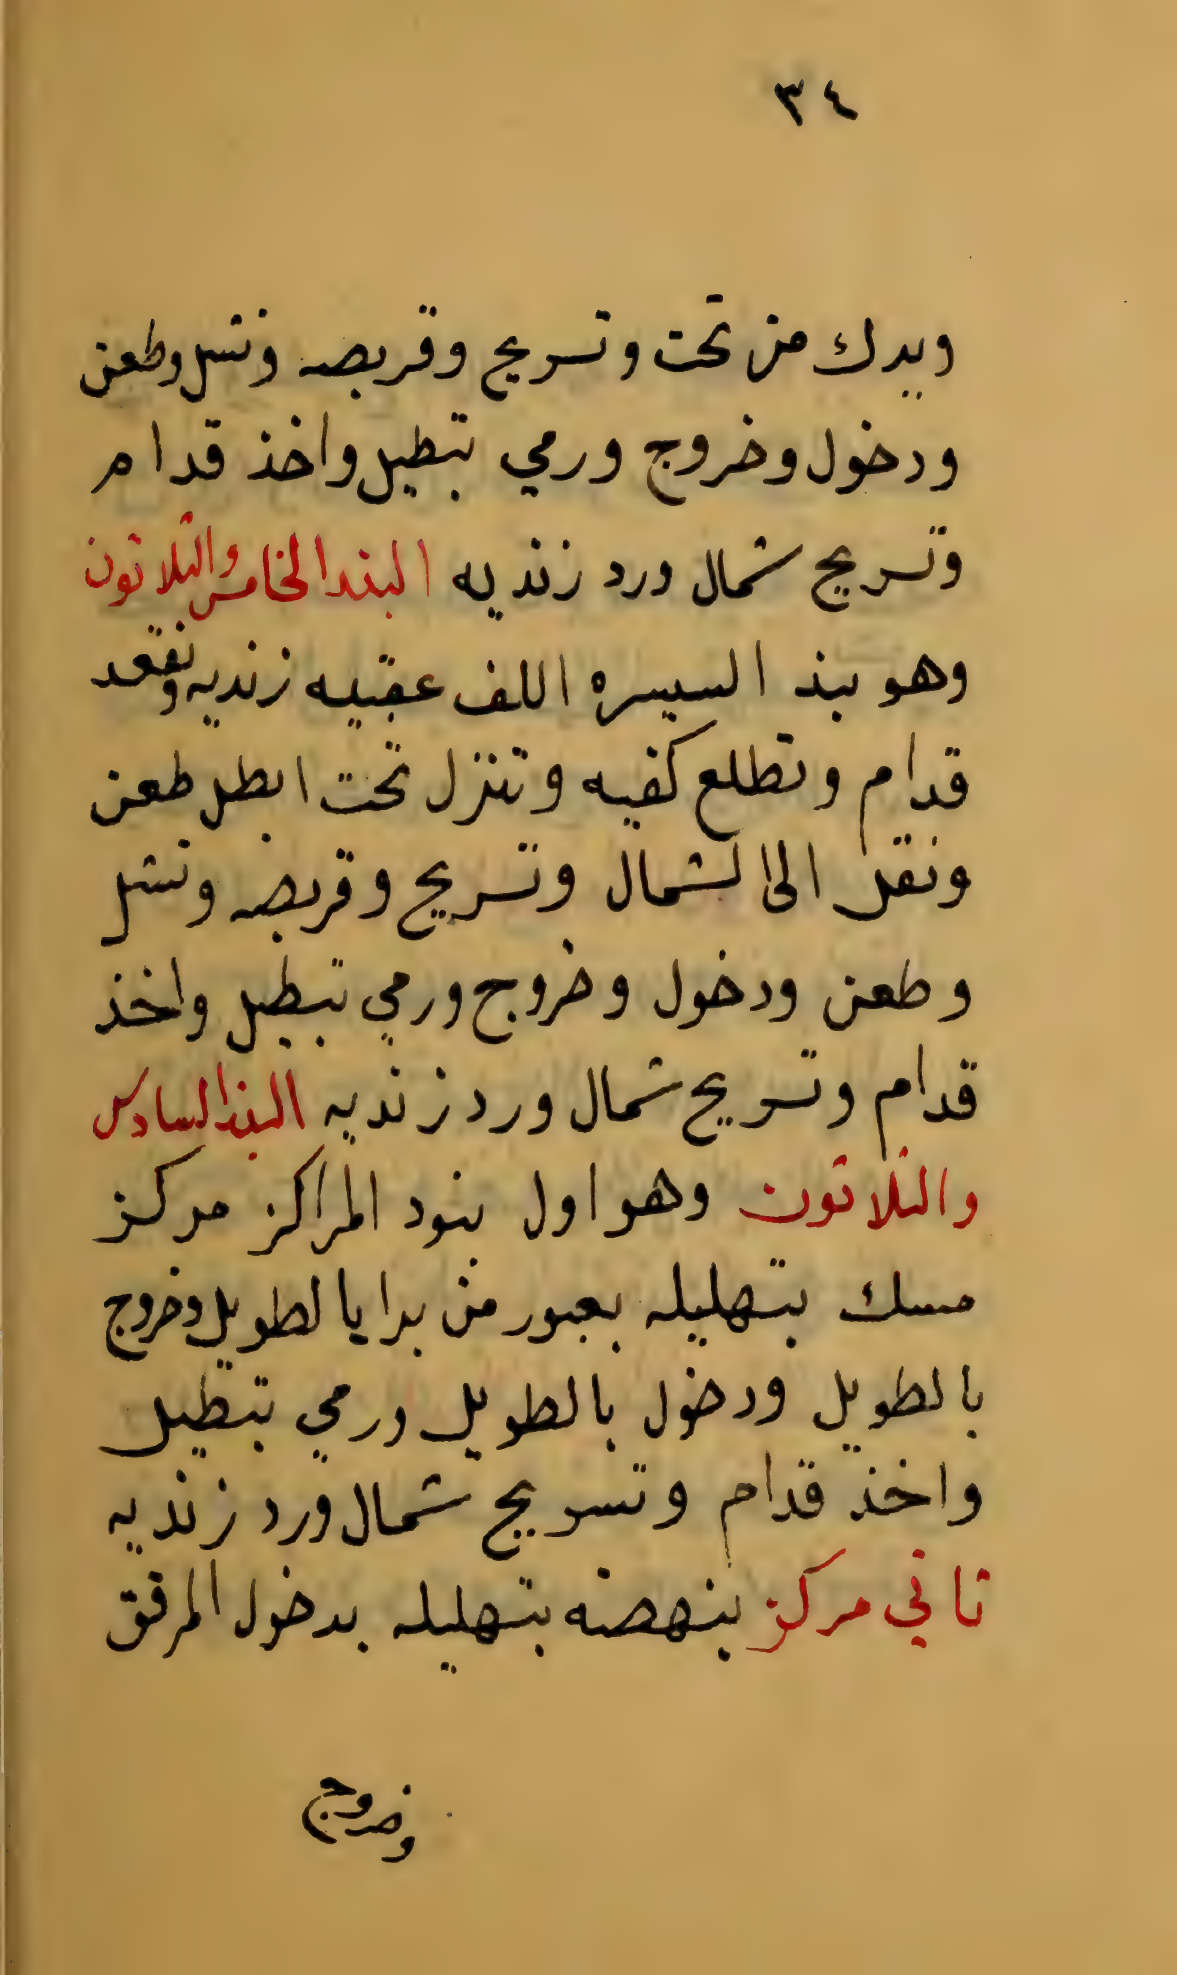 ٣٤
ويدك من تحت وتسريح وقربصه ونشل وطعن
ودخول وخروج ورمي تبطيل واخذ قدام
وتسريح شمال ورد زنديه البند الخامس والتلاتون
وهو بند السيسره اللف عقبيه زنديه وتقعد
قدام وتطلع كفيه وتنزل تحت ابطل طعن
ونقل الى الشمال وتسريح وقربصه ونشل
وطعن ودخول وخروج ورمي تبطيل واخذ
قدام وتسريح شمال ورد زنديه البند السادس
والتلاتون وهو اول بنود المراكز مركز
مسك بتهليله بعبور من برا يا لطويل وخروج
بالطويل ودخول بالطويل ورمي بتبطيل
واخذ قدام وتسريح شمال ورد زنديه
تاني مركز بنهضه بتهليله بدخول المرفق
وخروج